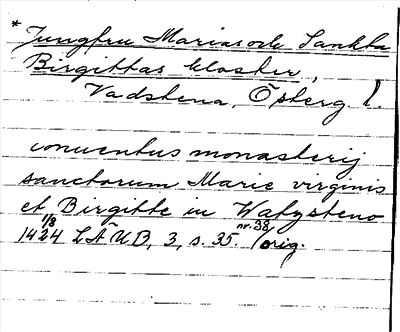 * Jungfru Marias och Sankta
Birgittas kloster,
Vadstena, Österg l.
conventus monasterij
sanctorum Marie virginis
et Birgitte in Watzsteno
1/8 nr. 38
1424 LÄUB, 3, s. 35. / orig.